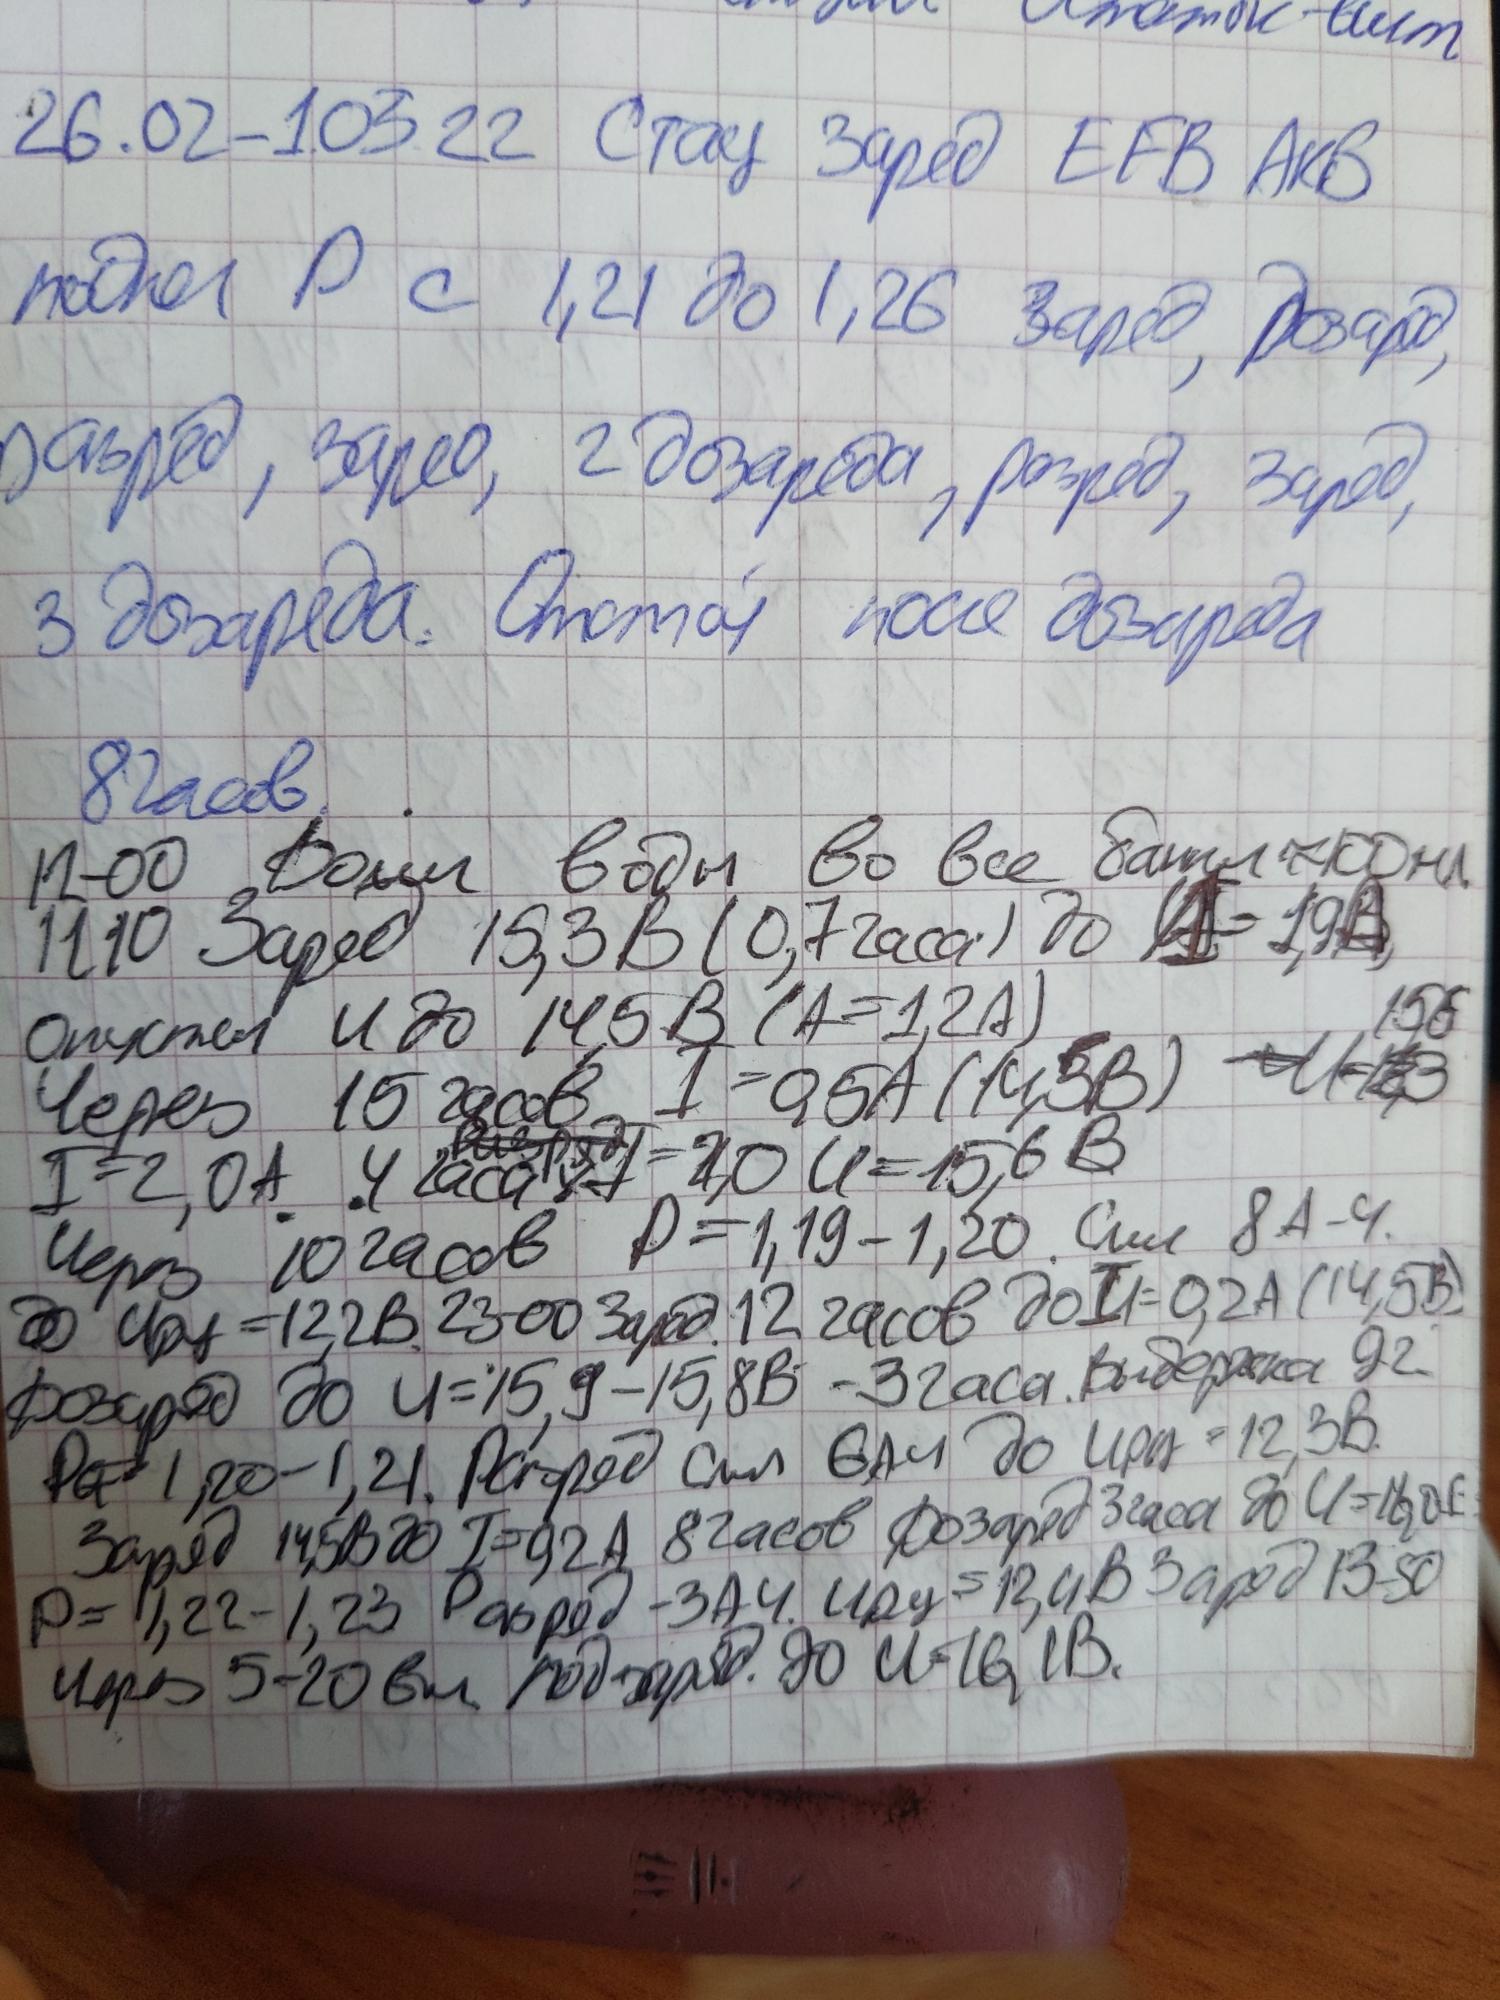 26.02-10322 Стац Заряд EFB АКБ
поднял P с 1,21 до 1,26 Заряд, Дозаряд,
разряд, заряд, 2 дозаряда, розряд, заряд,
3 дозаряда. Отстой после дозаряда
8 часов.
12-00 Долил воды во все банки ≈100 мл
12.10 Заряд 15,3В (0,7 часа) до I = 1,9А,
опустил U до 14,5В (А=1,2А)
Через 15 часов I = 0,5А (14,5В)
I=2,0А. 4 часа U=15,6В
Через 10 часов P=1,19-1,20. Снял 8А-ч.
до Uрц=12,2В. 23-00 Заряд. 12 часов до I=0,2А (14,5В)
Дозаряд до U=15,9-15,8В -3 часа. Выдержка 9г
P=1,20-1,21. Разряд Снял 6Ач до Uрц=12,3В.
Заряд 14,5В до I=0,2А 8 часов Дозаряд 3 часа до U=16,0
P=1,22-1,23 Разряд -3А-ч. Uрц=12,4В Заряд 13-50
Через 5-20 вкл. подзаряд. до U=16,1В.